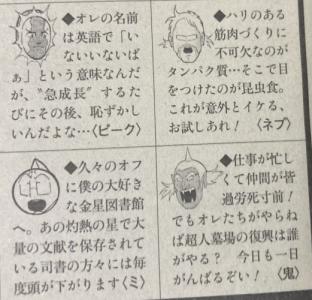 ◆オレの名前
は英語で「い
ないいないば
ぁ」という意味なんだ
が、〝急成長〟するた
びにその後、恥ずかし
いんだよな…〈ピーク〉
◆ハリのある
筋肉づくりに
不可欠なのが
タンパク質…そこで目
をつけたのが昆虫食。
これが意外とイケる、
お試しあれ！〈ネプ〉
◆久々のオフ
に僕の大好き
な金星図書館
へ。あの灼熱の星で大
量の文献を保存されて
いる司書の方々には毎
度頭が下がります〈ミ〉
◆仕事が忙し
くて仲間が皆
過労死寸前！
でもオレたちがやらね
ば超人墓場の復興は誰
がやる？　今日も一日
がんばるぞい！〈鬼〉